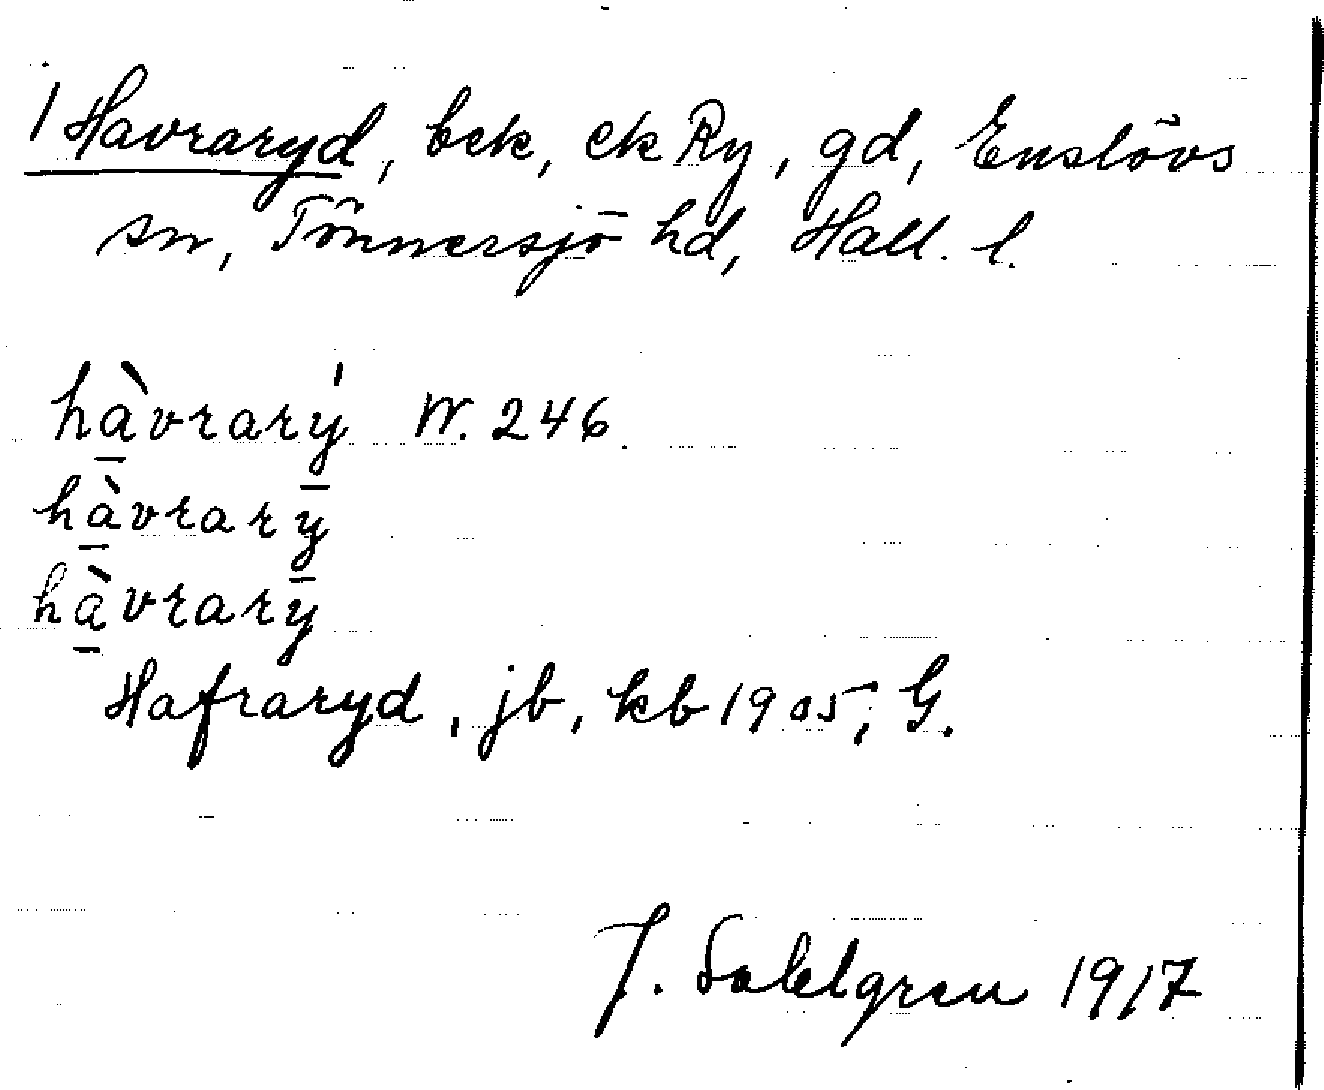 1 Havraryd, bek, ek Ry, gd, Enslövs
sn, Tönnersjö hd, Hall. l.
hà̱vrarý W. 246.
hà̱vrarȳ
hà̱vrarȳ
Hafraryd, jb, kb 1905, G.
J. Sahlgren 1917